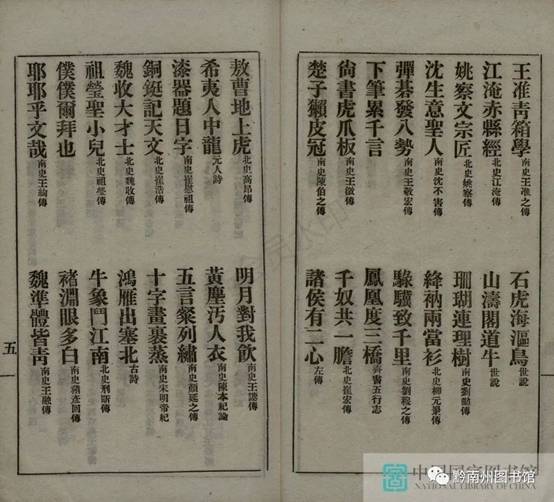 王准青箱學 南史王准之傳 石虎海漚鳥 世說
江淹赤縣經 北史江淹傳 山濤閣道牛 世說
姚察文宗匠 北史姚察傳 珊瑚連理樹 南史劉勔傳
沈生意聖人 南史沈不害傳 絳衲兩當衫 北史柳元景傳
彈碁發八勢 南史王敬宏傳 騄驥致千里 南史劉穆之傳
下筆累千言 鳳凰度三橋 齊書五行志
尙書虎爪板 南史王微傳 千奴共一膽 北史崔宏傳
楚子獺皮冠 南史陳伯之傳 諸侯有二心 左傳
敖曹地上虎 北史高昂傳 明月對我飲 南史傳
希夷人中龍 元人詩 黃塵汚人衣 南史陳本紀論
漆器題日字 南史崔祖傳 五言粲列繡 南史顏延之傳
銅鋌記天文 北史崔浩傳 十字畫裹蒸 南史宋明帝紀
魏收大才士 北史魏收傳 鴻雁出塞北 古詩
祖瑩聖小兒 北史祖瑩傳 牛象鬥江南 北史邢昕傳
僕僕爾拜也 褚淵眼多白 南史彥回傳
耶耶乎文哉 南史王絢傳 魏準體皆靑 南史王融傳
五
中國國家图书馆
NATIONAL LIBRARY OF CHINA
黔南州图书馆